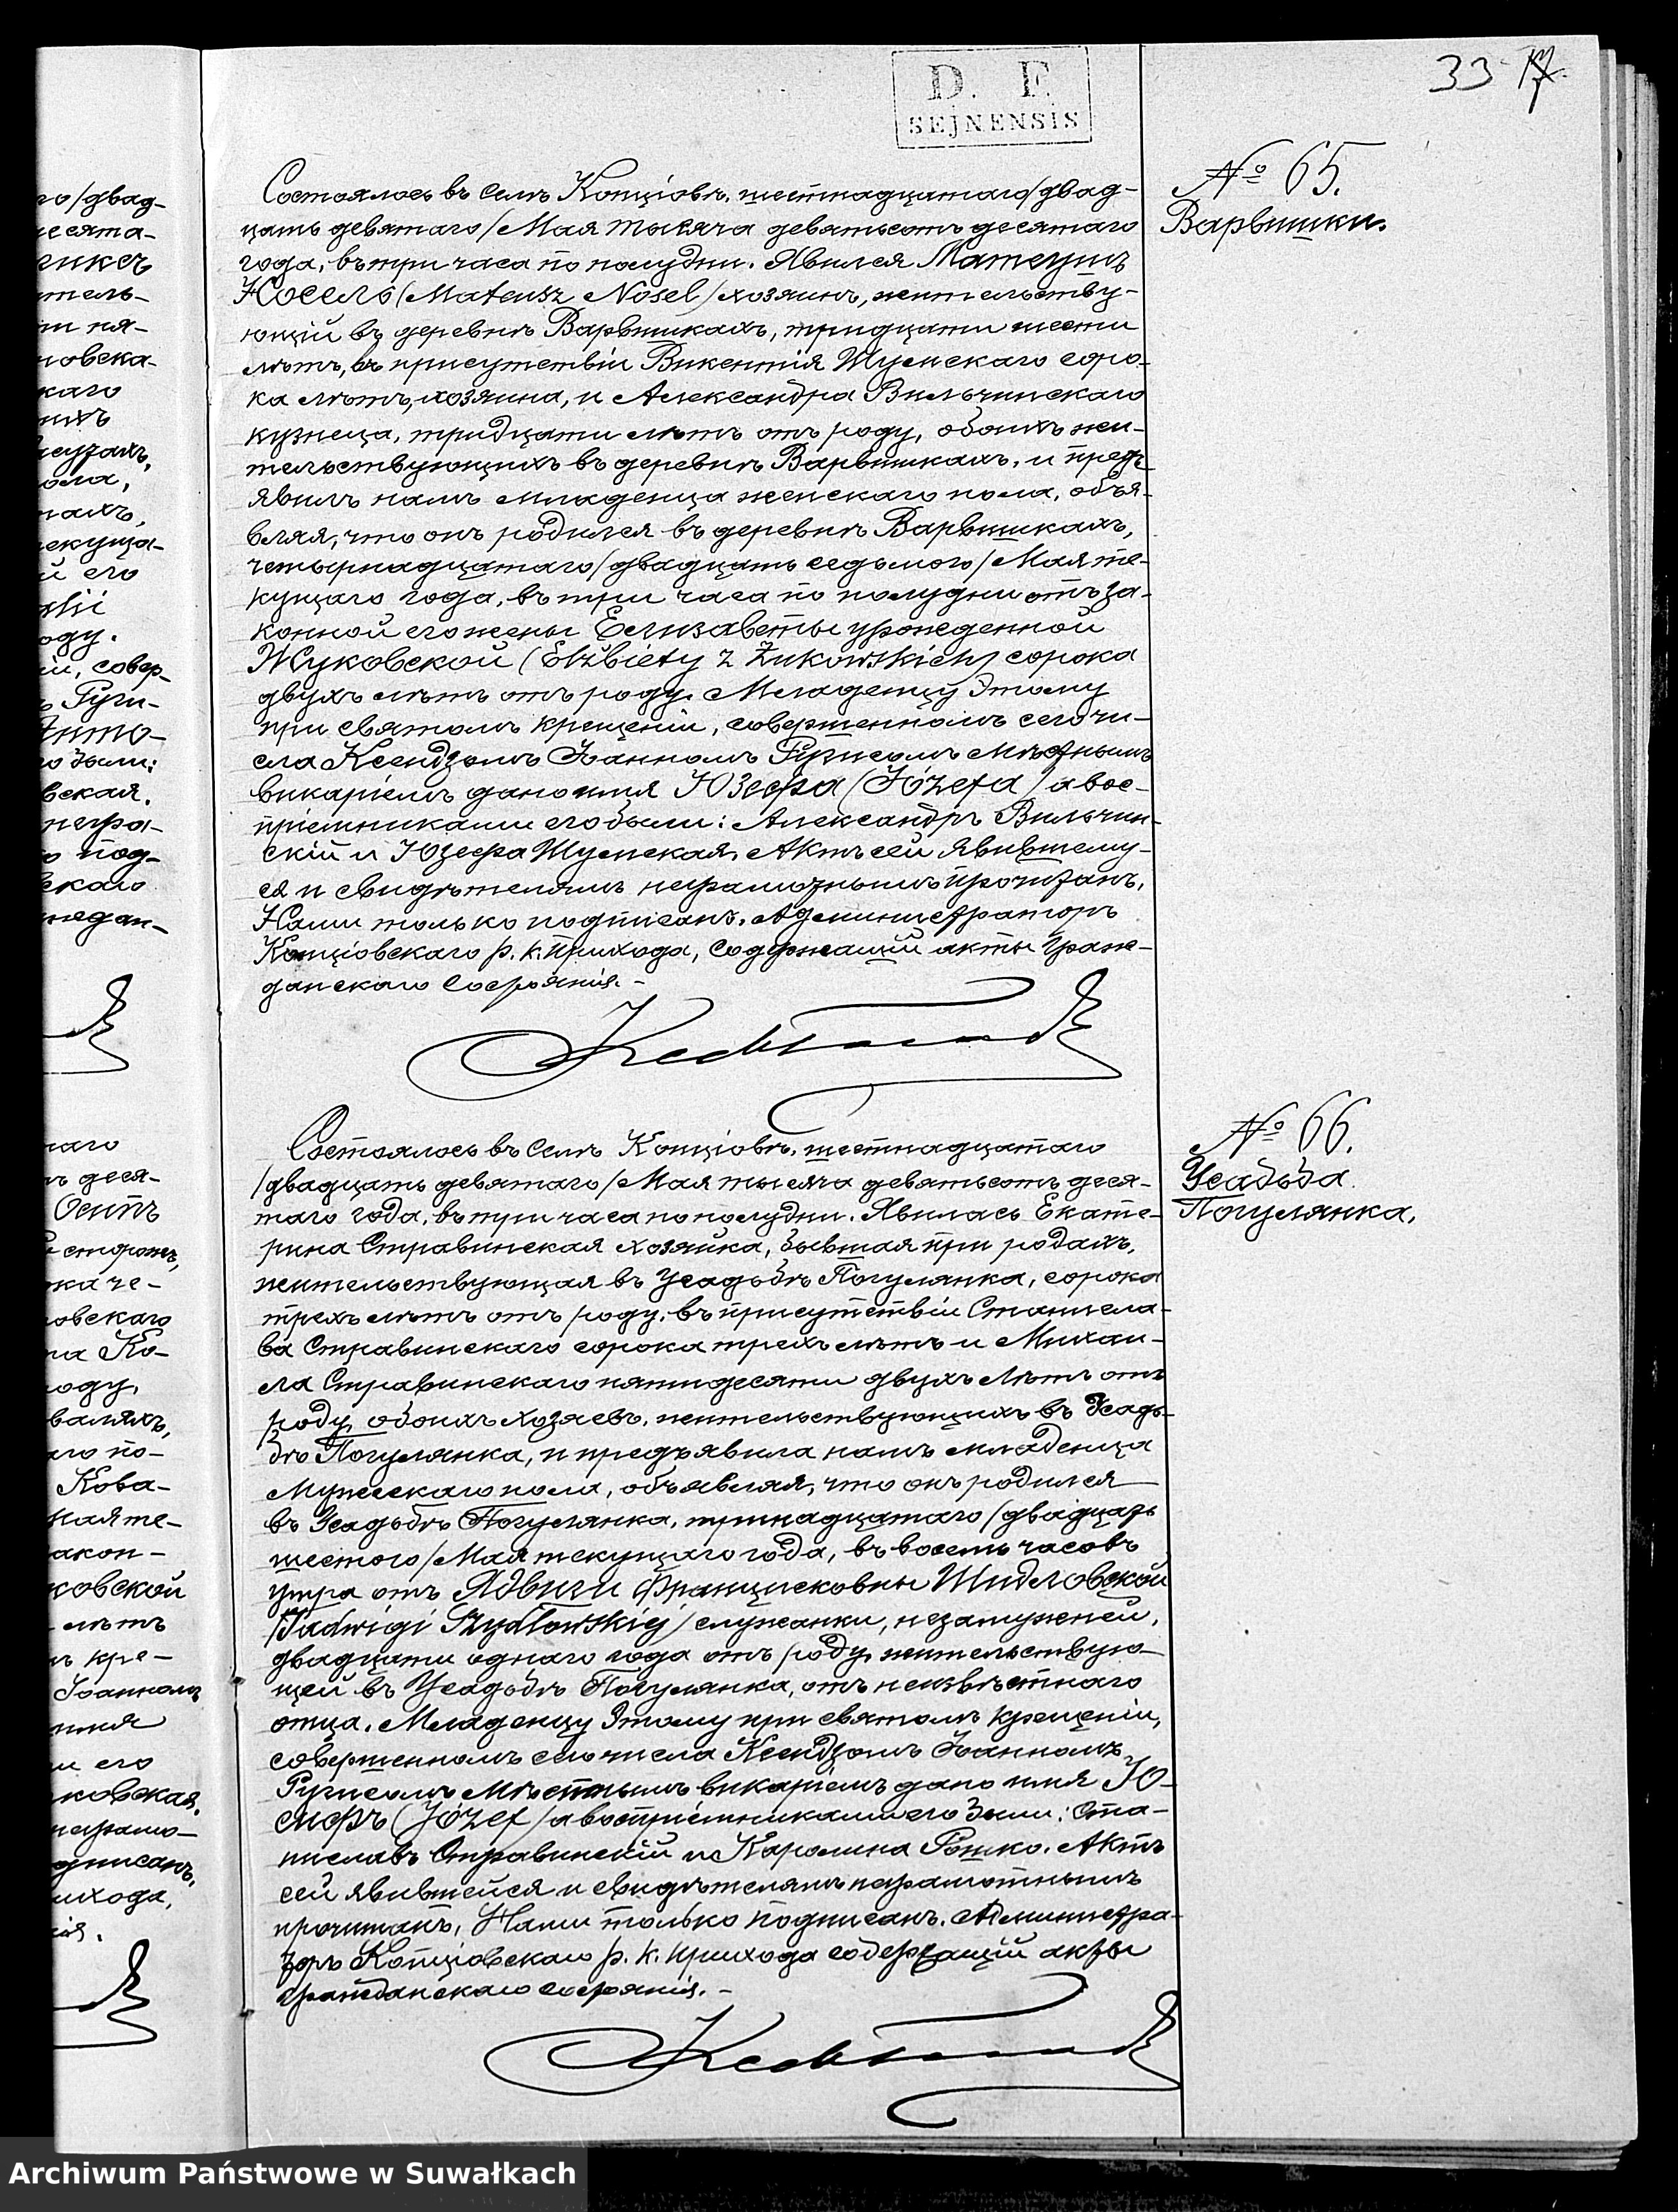 33 17
D. F.
SEJNENSIS
№ 65.
Варвишки.
Состоялось въ селѣ Копціовѣ, шестнадцатаго/двад-
цать девятаго/Мая тысяча девятьсотъ десятаго
года, въ три часа по полудни. Явился Матеушъ
Носель (Mateusz Nosel) хозяинъ, жительству-
ющій въ деревнѣ Варвишкахъ, тридцати шести
лѣтъ, въ присутствіи Викентія Шуискаго соро-
ка лѣтъ, хозяина, и Александра Вильчинскаго
кузнеца, тридцати лѣтъ отъ роду, обоихъ жи-
тельствующихъ въ деревнѣ Варвишкахъ, и предъ
явилъ намъ младенца женскаго пола, объя-
вляя, что онъ родился въ деревнѣ Варвишкахъ,
четырнадцатаго/двадцать седьмого/Мая те-
кущаго года, въ три часа по полудни отъ за-
конной его жены Елизаветы урожденной
Жуковской (Elżbiety z Żukowskich) сорока
двухъ лѣтъ отъ роду. Младенцу этому
при святомъ крещеніи, совершенномъ сего чи-
сла Ксендзомъ Іоанномъ мѣстнымъ
викаріемъ дано имя Юзефа (Józefa) а вос-
пріемниками его были: Александръ Вильчин-
скій и Юзефа Шуиская. Актъ сей явившему-
ся и свидѣтелямъ неграмотнымъ прочитанъ,
Нами только подписанъ. Администраторъ
Копціовскаго р. к. прихода, содержащій акты граж-
данскаго состоянія. -
№ 66.
Усадьба
Погулянка.
Состоялось въ селѣ Копціовѣ, шестнадцатаго
/двадцать девятаго/Мая тысяча девятьсотъ деся-
таго года, въ три часа по полудни. Явилась Екате-
рина Стравинская хозяйка, бывшая при родахъ,
жительствующая въ усадьбѣ Погулянка, сорока
трехъ лѣтъ отъ роду, въ присутствіи Станисла-
ва Стравинскаго сорока трехъ лѣтъ и Михаи-
ла Стравинскаго пятидесяти двухъ лѣтъ отъ
роду, обоихъ хозяевъ, жительствующихъ въ Усадь-
бѣ Погулянка, и предъявила намъ младенца
мужескаго пола, объявляя, что онъ родился
въ Усадьбѣ Погулянка, тринадцатаго/двадцать
шестого/Мая текущаго года, въ восемь часовъ
утра отъ Ядвиги Францисковны Шидловской
(Jadwigi Szydłowskiej) служанки, незамужней,
двадцати одного года отъ роду, жительствую-
щей въ Усадьбѣ Погулянка, отъ неизвѣстнаго
отца. Младенцу этому при святомъ крещеніи,
совершенномъ сего числа Ксендзомъ Іоанномъ
мѣстнымъ викаріемъ дано имя Іо-
сифъ (Józef) а воспріемниками его были: Ста-
ниславъ Стравинскій и Каролина Рошко. Актъ
сей явившейся и свидѣтелямъ неграмотнымъ
прочитанъ, Нами только подписанъ. Администра-
торъ Копціовскаго р. к. прихода содержащій акты
гражданскаго состоянія. -
Archiwum Państwowe w Suwałkach